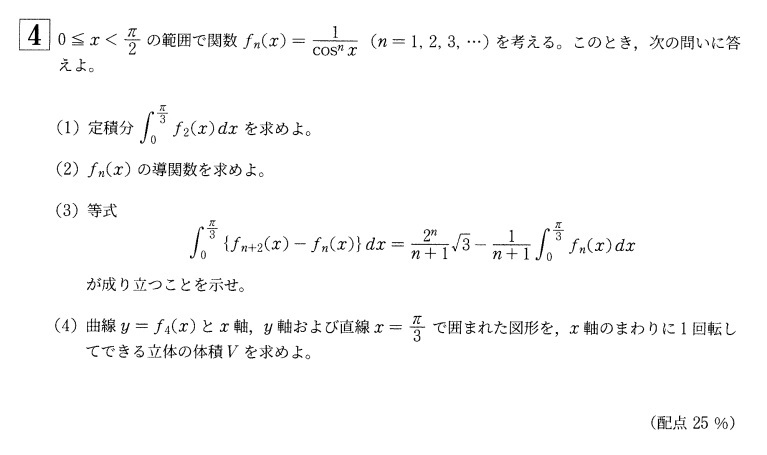 4 0 ≦ x < π/2 の範囲で関数 fₙ(x) = 1/cosⁿ x (n = 1, 2, 3, …) を考える。このとき，次の問いに答
えよ。
(1) 定積分 ∫₀^{π/3} f₂(x) dx を求めよ。
(2) fₙ(x) の導関数を求めよ。
(3) 等式
∫₀^{π/3} {fₙ₊₂(x) − fₙ(x)} dx = 2ⁿ/(n+1) √3 − 1/(n+1) ∫₀^{π/3} fₙ(x) dx
が成り立つことを示せ。
(4) 曲線 y = f₄(x) と x 軸，y 軸および直線 x = π/3 で囲まれた図形を，x 軸のまわりに 1 回転し
てできる立体の体積 V を求めよ。
(配点 25 %)